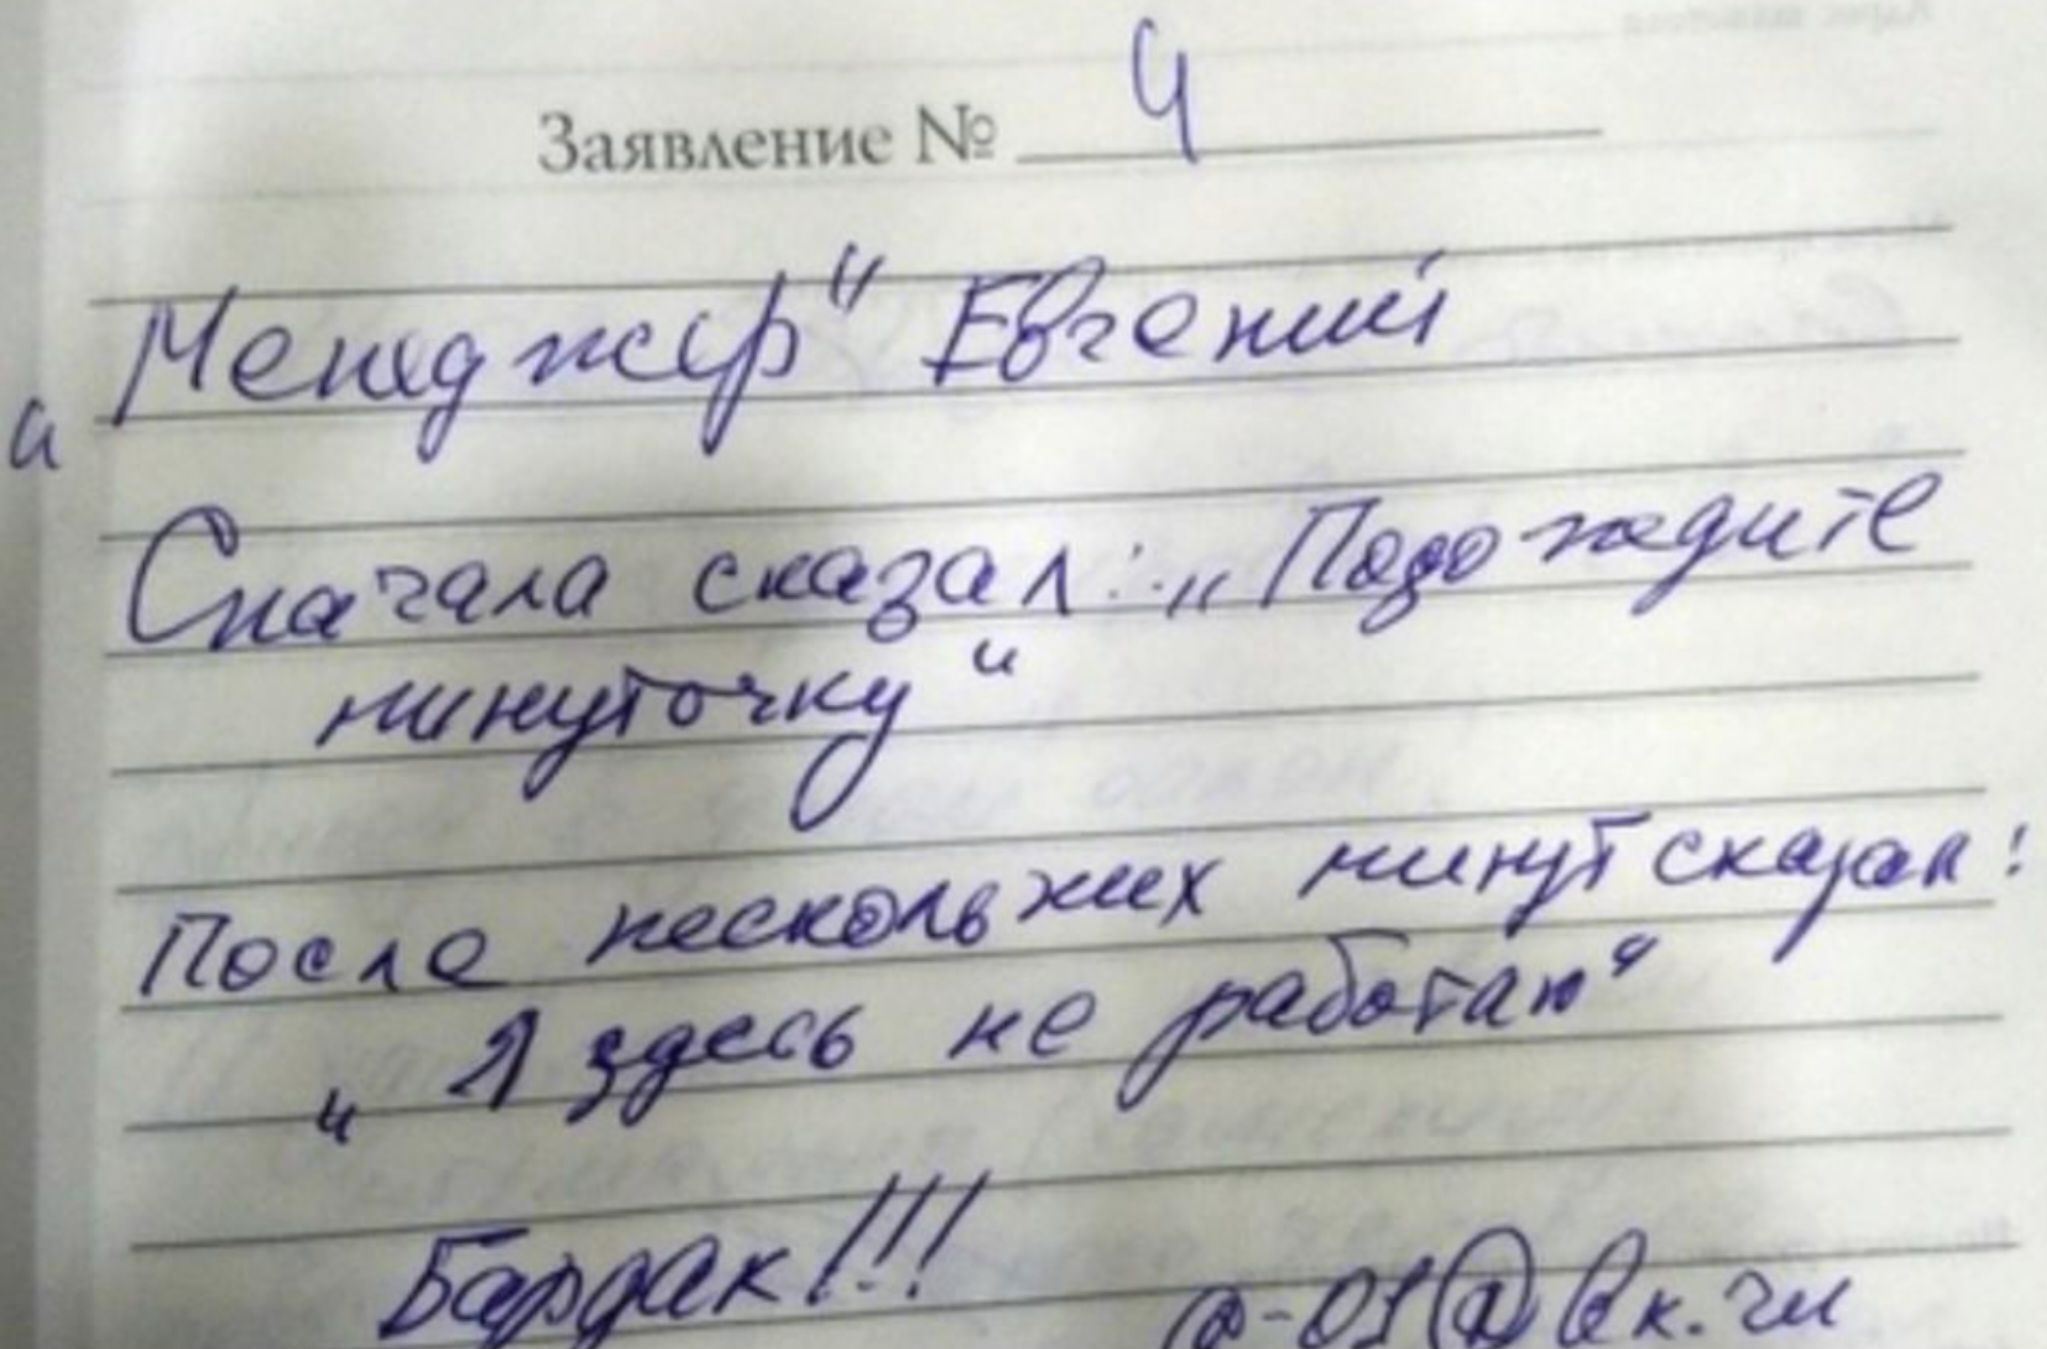 Заявление № 4
„Менеджер“ Евгений
Сначала сказал: „Подождите
минуточку“
После нескольких минут сказал:
„Я здесь не работаю“
Бардак!!!